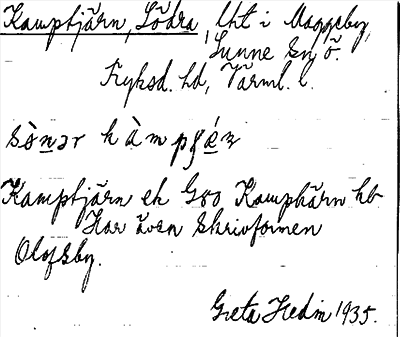 Kamptjärn, Södra, lht i Maggeby,
Sunne sn ö.
Fryksd. hd, Värml. l.
sö̀nər hàmpɟǽn
Kamptjärn ek G80 Kamphärn hb
Har även skrivformen
Olofsby.
Greta Hedin 1935.